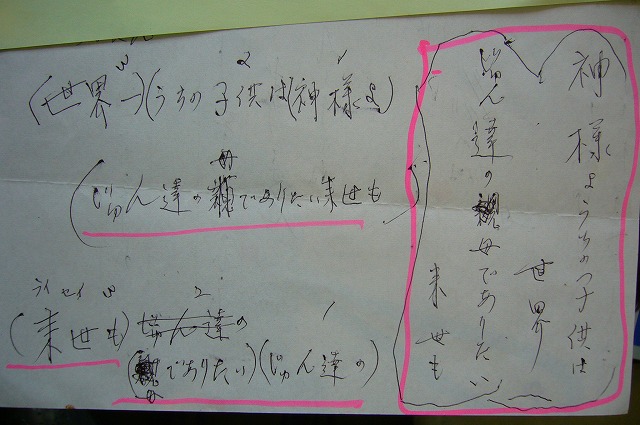 3 2 1
(世界一)(うちの子供は(神様よ)
母
(じゅん達の でありたい来世も
ライセイ 3 2 1
(来世も)じゅん達の
( でありたい)(じゅん達の)
母
神様ようちの子供は
世界
じゅん達の 母でありたい
来世も